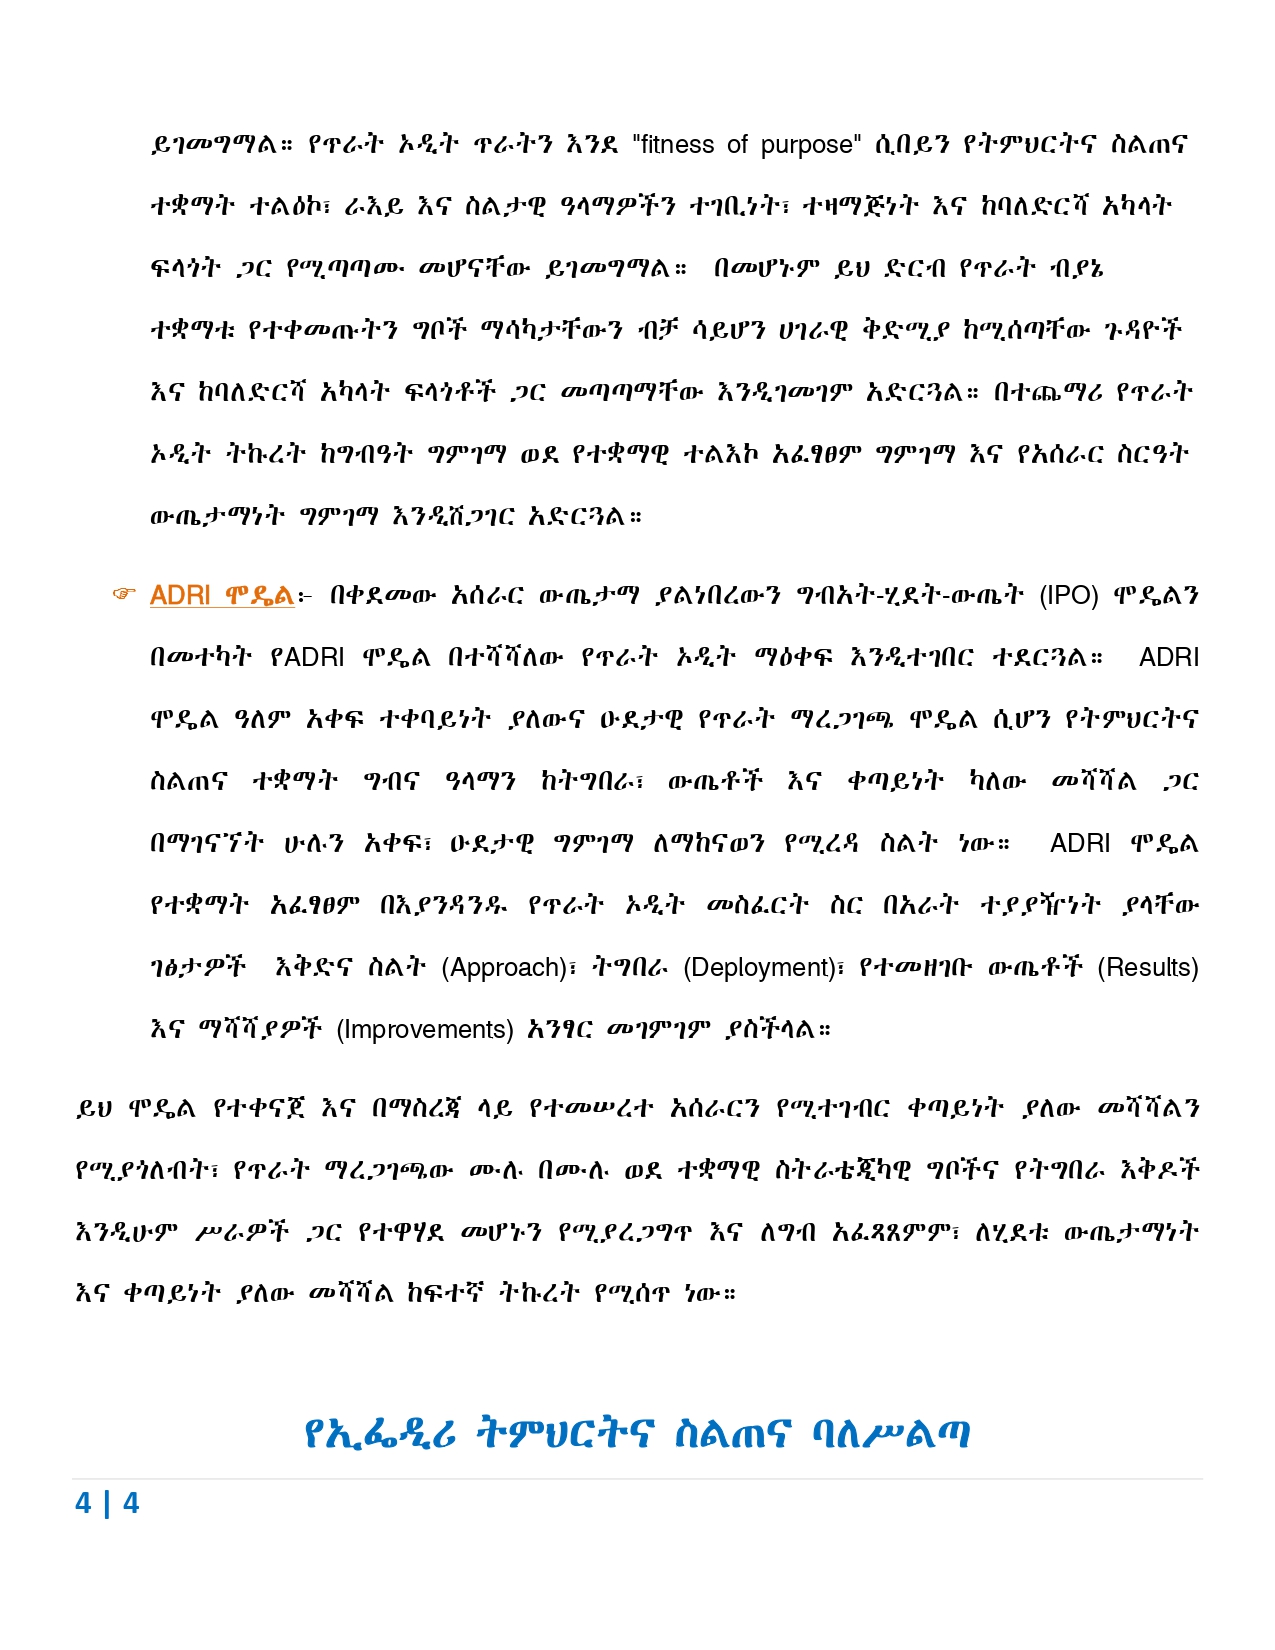 ይገመግማል። የጥራት ኦዲት ጥራትን እንደ "fitness of purpose" ሲበይን የትምህርትና ስልጠና
ተቋማት ተልዕኮ፣ ራእይ እና ስልታዊ ዓላማዎችን ተገቢነት፣ ተዛማጅነት እና ከባለድርሻ አካላት
ፍላጎት ጋር የሚጣጣሙ መሆናቸው ይገመግማል። በመሆኑም ይህ ድርብ የጥራት ብያኔ
ተቋማቱ የተቀመጡትን ግቦች ማሳካታቸውን ብቻ ሳይሆን ሀገራዊ ቅድሚያ ከሚሰጣቸው ጉዳዮች
እና ከባለድርሻ አካላት ፍላጎቶች ጋር መጣጣማቸው እንዲገመገም አድርጓል። በተጨማሪ የጥራት
ኦዲት ትኩረት ከግብዓት ግምገማ ወደ የተቋማዊ ተልእኮ አፈፃፀም ግምገማ እና የአሰራር ስርዓት
ውጤታማነት ግምገማ እንዲሸጋገር አድርጓል።
☞ ADRI ሞዴል፡- በቀደመው አሰራር ውጤታማ ያልነበረውን ግብአት-ሂደት-ውጤት (IPO) ሞዴልን
በመተካት የADRI ሞዴል በተሻሻለው የጥራት ኦዲት ማዕቀፍ እንዲተገበር ተደርጓል። ADRI
ሞዴል ዓለም አቀፍ ተቀባይነት ያለውና ዑደታዊ የጥራት ማረጋገጫ ሞዴል ሲሆን የትምህርትና
ስልጠና ተቋማት ግብና ዓላማን ከትግበራ፣ ውጤቶች እና ቀጣይነት ካለው መሻሻል ጋር
በማገናኘት ሁሉን አቀፍ፣ ዑደታዊ ግምገማ ለማከናወን የሚረዳ ስልት ነው። ADRI ሞዴል
የተቋማት አፈፃፀም በእያንዳንዱ የጥራት ኦዲት መስፈርት ስር በአራት ተያያዥነት ያላቸው
ገፅታዎች እቅድና ስልት (Approach)፣ ትግበራ (Deployment)፣ የተመዘገቡ ውጤቶች (Results)
እና ማሻሻያዎች (Improvements) አንፃር መገምገም ያስችላል።
ይህ ሞዴል የተቀናጀ እና በማስረጃ ላይ የተመሠረተ አሰራርን የሚተገብር ቀጣይነት ያለው መሻሻልን
የሚያጎለብት፣ የጥራት ማረጋገጫው ሙሉ በሙሉ ወደ ተቋማዊ ስትራቴጂካዊ ግቦችና የትግበራ እቅዶች
እንዲሁም ሥራዎች ጋር የተዋሃደ መሆኑን የሚያረጋግጥ እና ለግብ አፈጻጸምም፣ ለሂደቱ ውጤታማነት
እና ቀጣይነት ያለው መሻሻል ከፍተኛ ትኩረት የሚሰጥ ነው።
የኢፌዲሪ ትምህርትና ስልጠና ባለሥልጣ
4 | 4